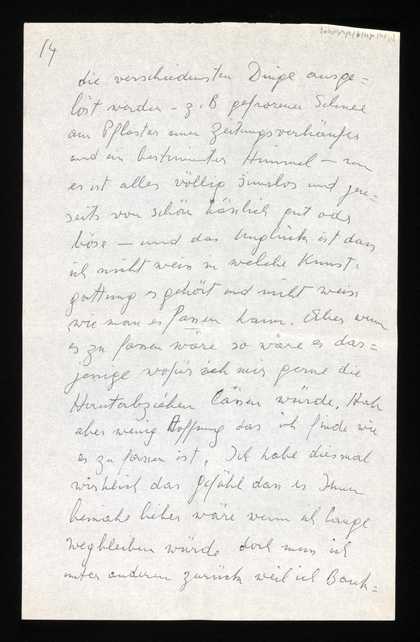 14
die verschiedensten Dinge ausge=
löst werden - z.B gefrorener Schnee
am Pflaster einer Zeitungsverkäufer
und ein bestimmter Himmel -
es ist alles völlig sinnlos und jen=
seits von schön hässlich gut oder
böse - und das Unglück ist dass
ich nicht weis zu welche Kunst=
gattung es gehört und nicht weis
wie man es fassen kann. Aber wenn
es zu fassen wäre so wäre es das=
jenige wofür ich mir gerne die
Haut abziehen lassen würde. Hab
aber wenig Hoffnung das ich finde wie
es zu fassen ist. Ich habe diesmal
wirklich das Gefühl dass es Ihnen
beinahe lieber wäre wenn ich lange
wegbleiben würde doch muss ich
unter anderen zurück weil ich Bank=